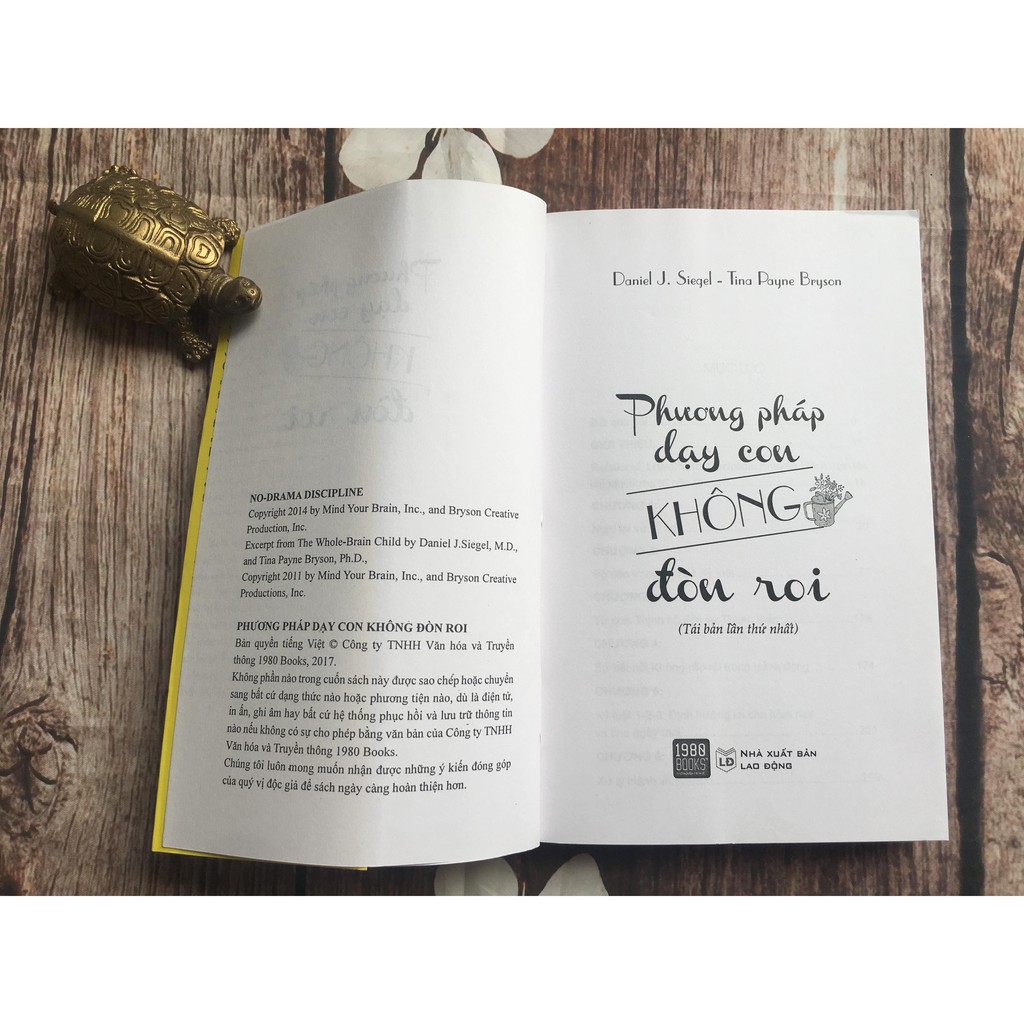 NO-DRAMA DISCIPLINE
Copyright 2014 by Mind Your Brain, Inc., and Bryson Creative
Production, Inc.
Excerpt from The Whole-Brain Child by Daniel J.Siegel, M.D.,
and Tina Payne Bryson, Ph.D.,
Copyright 2011 by Mind Your Brain, Inc., and Bryson Creative
Productions, Inc.
PHƯƠNG PHÁP DẠY CON KHÔNG ĐÒN ROI
Bản quyền tiếng Việt © Công ty TNHH Văn hóa và Truyền
thông 1980 Books, 2017.
Không phần nào trong cuốn sách này được sao chép hoặc chuyển
sang bất cứ dạng thức nào hoặc phương tiện nào, dù là điện tử,
in ấn, ghi âm hay bất cứ hệ thống phục hồi và lưu trữ thông tin
nào nếu không có sự cho phép bằng văn bản của Công ty TNHH
Văn hóa và Truyền thông 1980 Books.
Chúng tôi luôn mong muốn nhận được những ý kiến đóng góp
của quý vị độc giả để sách ngày càng hoàn thiện hơn.
Daniel J. Siegel - Tina Payne Bryson
Phương pháp
dạy con
KHÔNG
đòn roi
(Tái bản lần thứ nhất)
1980
BOOKS
LĐ
NHÀ XUẤT BẢN
LAO ĐỘNG